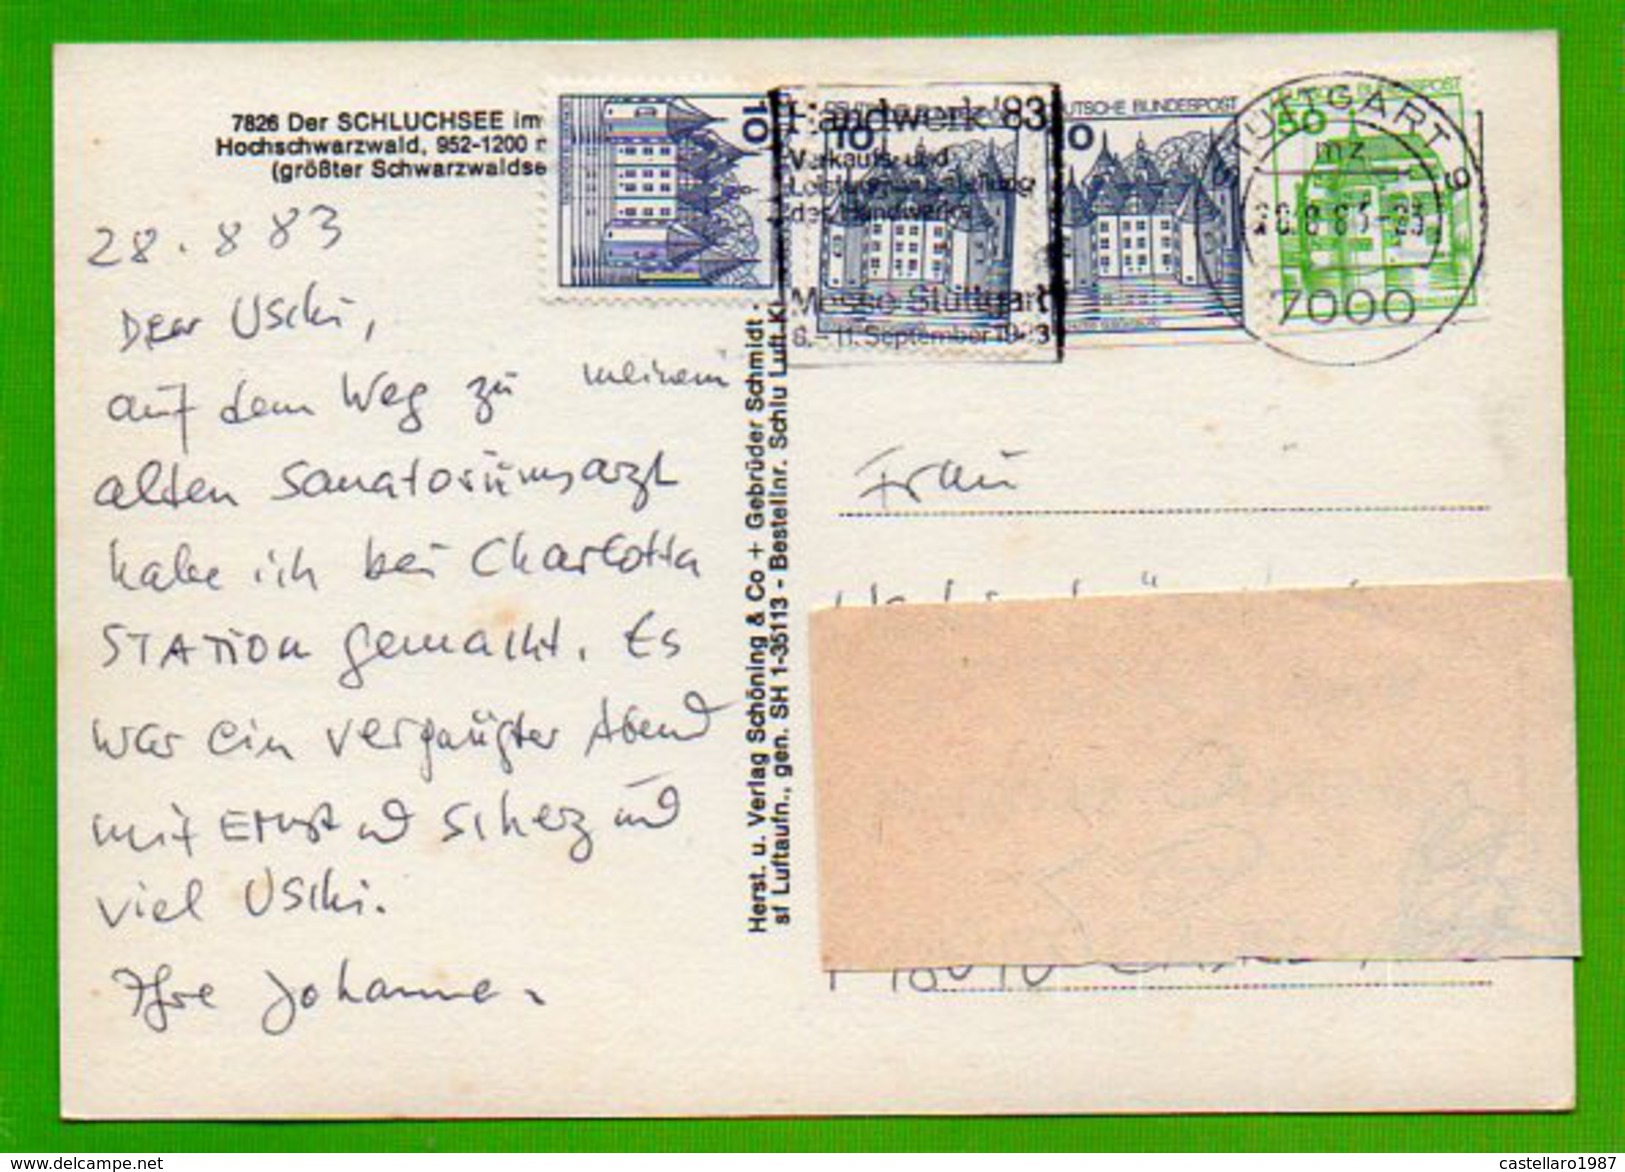 7826 Der SCHLUCHSEE im
Hochschwarzwald, 952-1200
(größter Schwarzwaldse
28.8 83
Dear Uschi,
auf dem Weg zu meinem
alten Sanatoriumsarzt
habe ich bei Charlotta
STATION gemacht. Es
war ein vergnügter Abend
mit Ernst und Scherz und
viel Uschi.
Ihre Johanna.
Herst. u. Verlag Schöning & Co + Gebrüder Schmidt -
sf Luftaufn., gen. SH 1-35113 - Bestellnr. Schlu Luft K
10
10
DEUTSCHE BUNDESPOST
50
Handwerk '83
Verkaufs- und
Leistungsausstellung
des Handwerks
Messe Stuttgart
11. September 1983
STUTTGART 9
mz
7000
Frau
castellaro1987